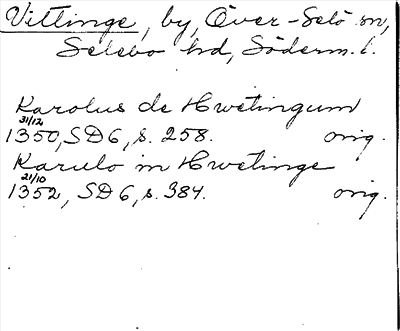 Vittinge, by, Över-Selö sn,
Selebo hd, Söderm. l.
Karolus de Hwetingum
31/12
1350, SD 6, s. 258. orig.
Karulo in Hwetinge
21/10
1352, SD 6, s. 384. orig.